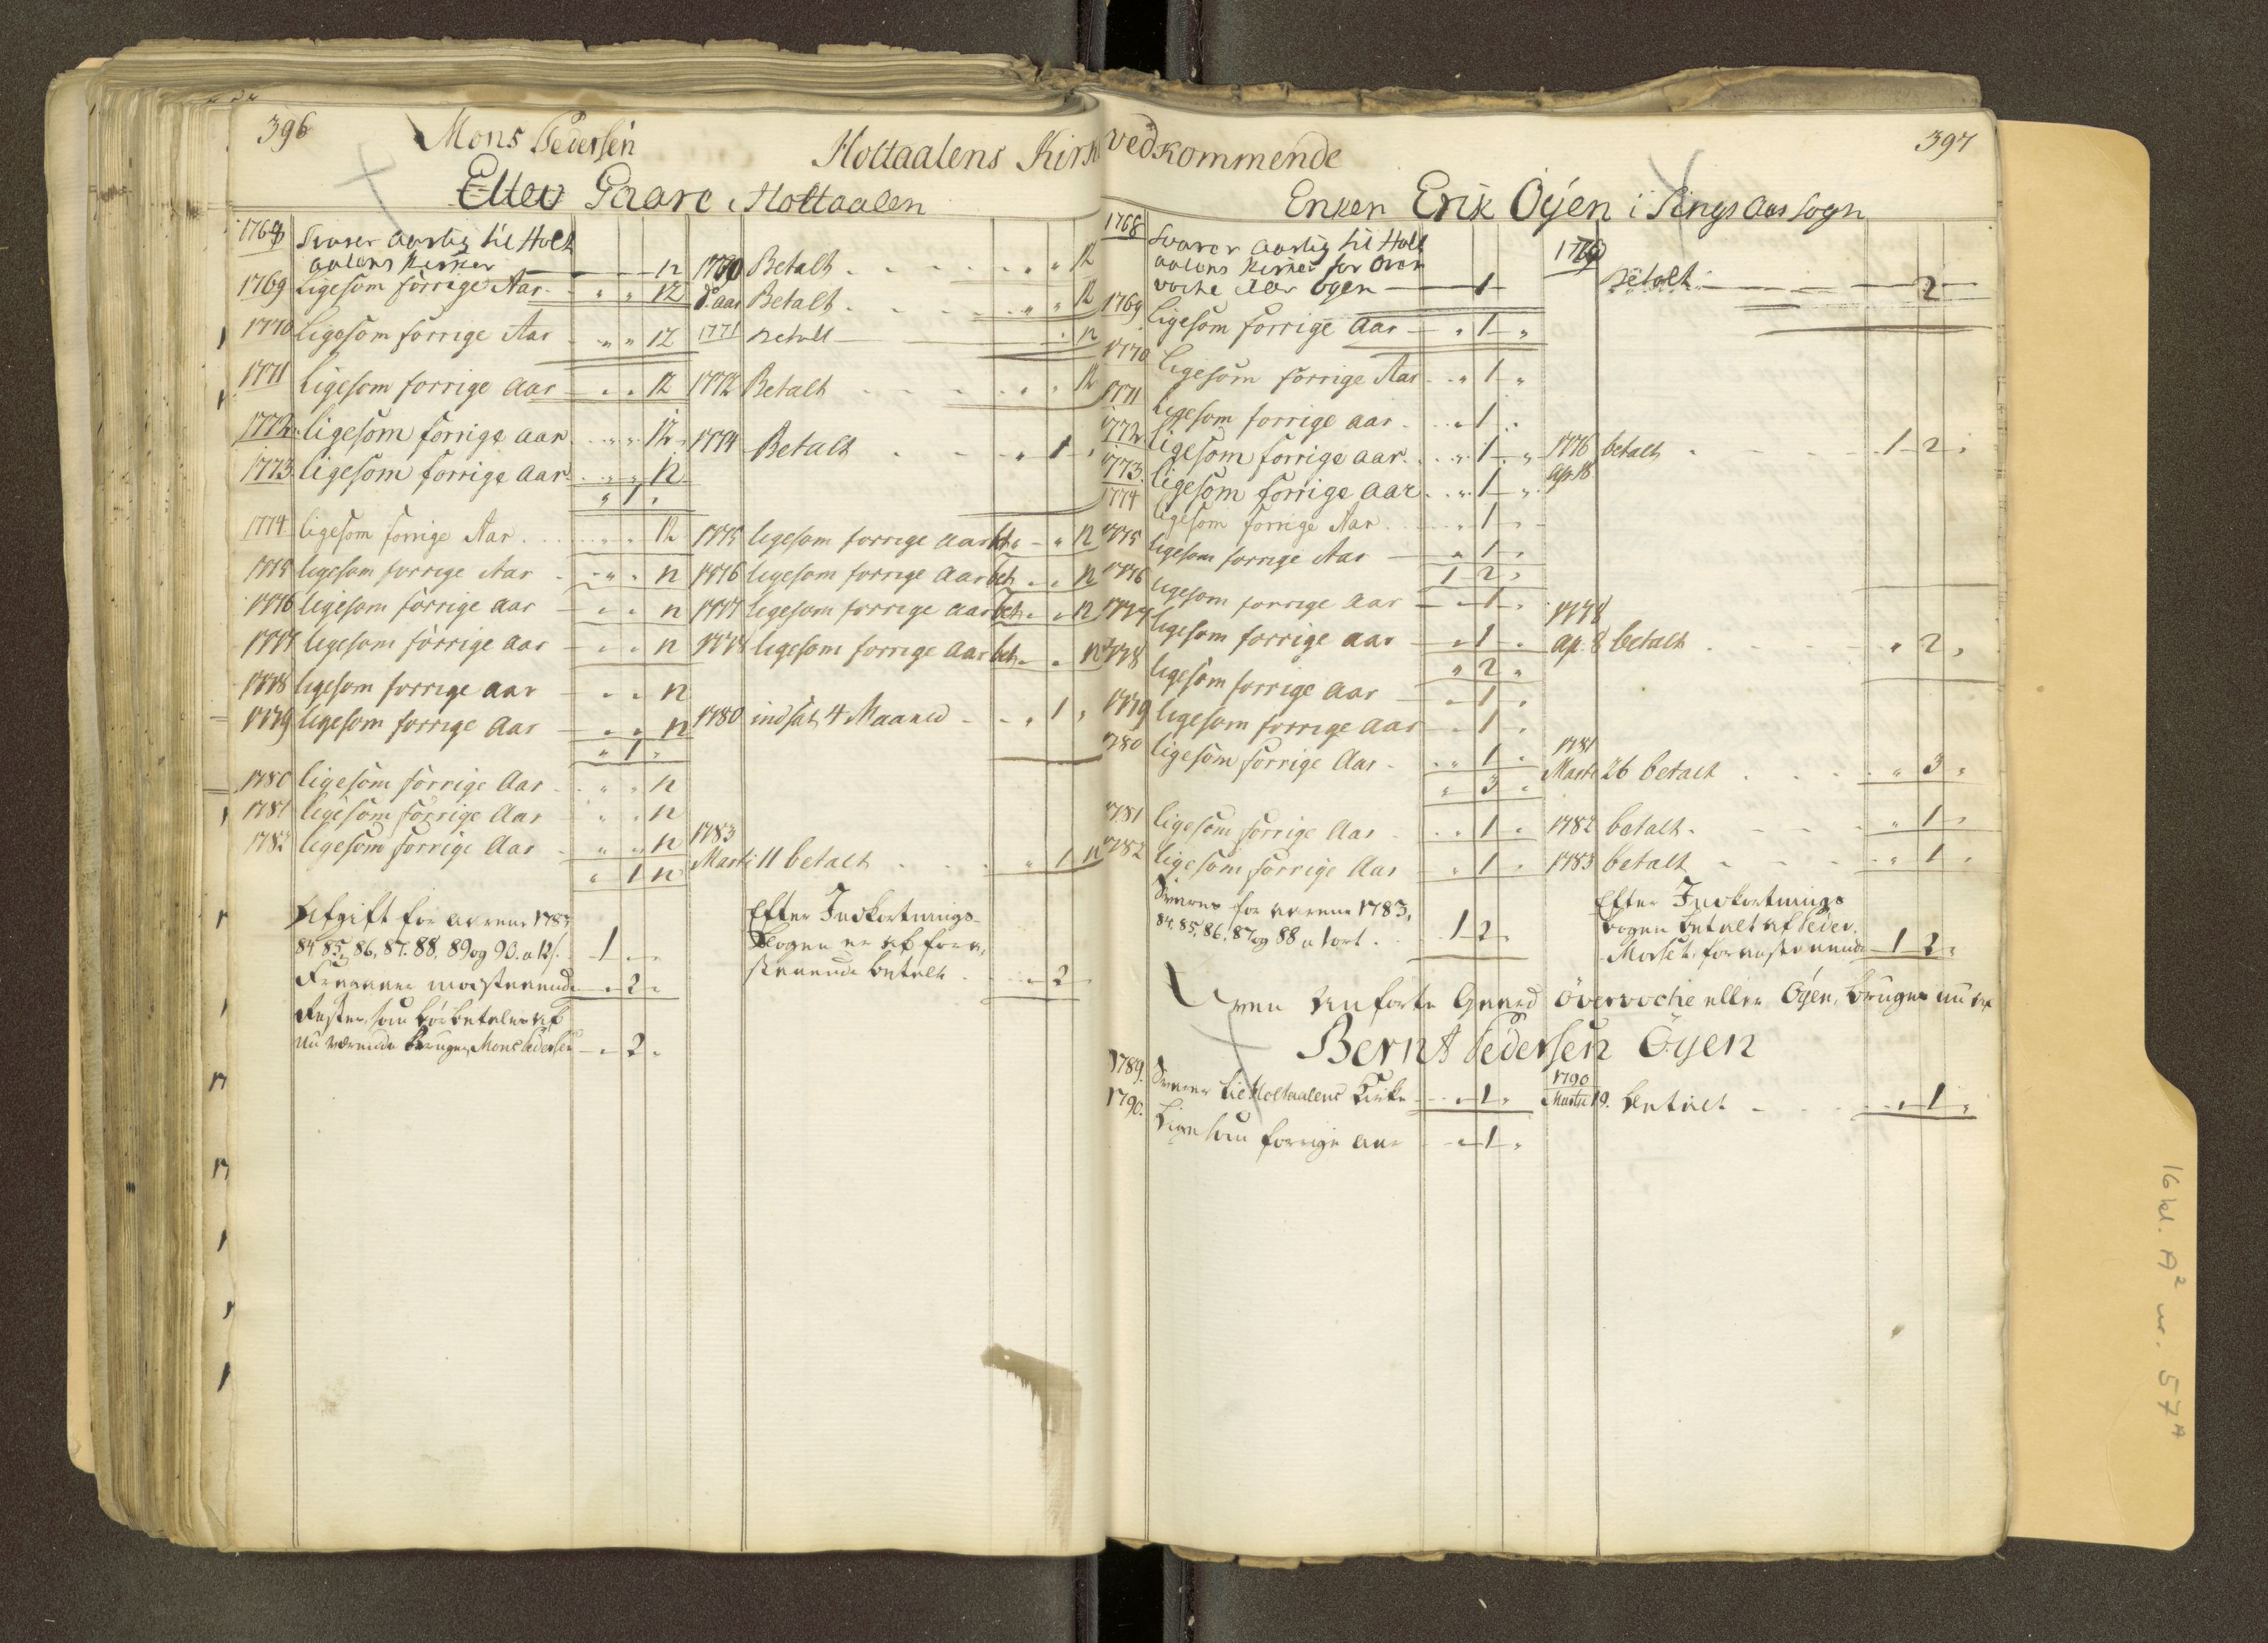 396
Mons Pedersen
Holtaalens Kirk
Elleu Gaare i Holtaalen
1768 Svarer aarlig til Holt
aalens Kirker 12
1769 Ligesom forrige Aar " " 12
1770 Ligesom forrige Aar " " 12
1771 Ligesom forrige Aar " " 12
1772 ligesom forrige aar " " 12
1773 ligesom forrige aar " " 12
" 1 "
1774 ligesom forrige Aar " " 12
1775 ligesom forrige Aar " " 12
1776 ligesom forrige aar " " 12
1777 ligesom forrige aar " " 12
1778 ligesom forrige aar " " 12
1779 ligesom forrige Aar " " 12
" 1 "
1780 ligesom forrige Aar " " 12
1781 ligesom forrige Aar " " 12
1782 ligesom forrige Aar " " 12
" 1 12
Afgift for aarene 1783
84. 85, 86, 87. 88, 89 og 90. a 12 s. 1 "
" 2 "
Rester, som bør betales af
nu værende bruger Mons Pedersen " 2 "
1770 Betalt " " 12
d. aar Betalt " " 12
1771 Betalt " 12
1772 Betalt " " 12
1774 Betalt " 1 "
1775 ligesom forrige aar bet. " 12
1776 ligesom forrige aar bet. " " 12
1777 ligesom forrige aar bet. " " 12
1778 ligesom forrige aar bet. " 12
1780 indsat 4 Maaned " 1 "
1783
Marti 11 betalt " 1 12
Efter Indkortnings-
Bogen er af foran,
staaende betalt " 2 "
vedkommende
397
Enken Erik Öyen i Singsaas sogn
1768 Svarer aarlig til Holt
aalens Kirker for Over
voche eller Ögen 1
1769 Ligesom forrige aar " 1 "
1770 Ligesom forrige Aar " 1 "
1771 Ligesom forrige aar " 1 "
1772 ligesom forrige aar " 1 "
1773 ligesom forrige aar " 1 "
1774 ligesom forrige Aar " 1 "
1775 ligesom forrige Aar " 1 "
1 2 "
1776 ligesom forrige aar " 1 "
1777 ligesom forrige aar " 1 "
" 2 "
1778 ligesom forrige aar " 1 "
1779 ligesom forrige aar " 1 "
1780 ligesom forrige Aar " 1 "
" 3 "
1781 ligesom forrige Aar " 1 "
1782 ligesom forrige Aar " 1 "
Svarer for aarene 1783,
84. 85. 86. 87 og 88 a 1 ort. 1 2 "
1769
Betalt 2
1776 betalt 1 2 "
Apr. 18
1778
Ap. 8 betalt " 2 "
1781
Marti 26 betalt " 3 "
1782 betalt " 1 "
1783 betalt " 1 "
Efter Indkortnings
bogen betalt af Peder
Morset. foranstaaende 1 2 "
anførte Gaard Övervoche eller Öyen, bruges nu af
Bernt Pedersen Öyen
1789. Svarer til Holtaalens Kirke " 1 "
1790. Ligesom forrige aar " 1 "
1790
Martii 19. betalt " 1 "
16 kl. A² nr. 57ᴬ